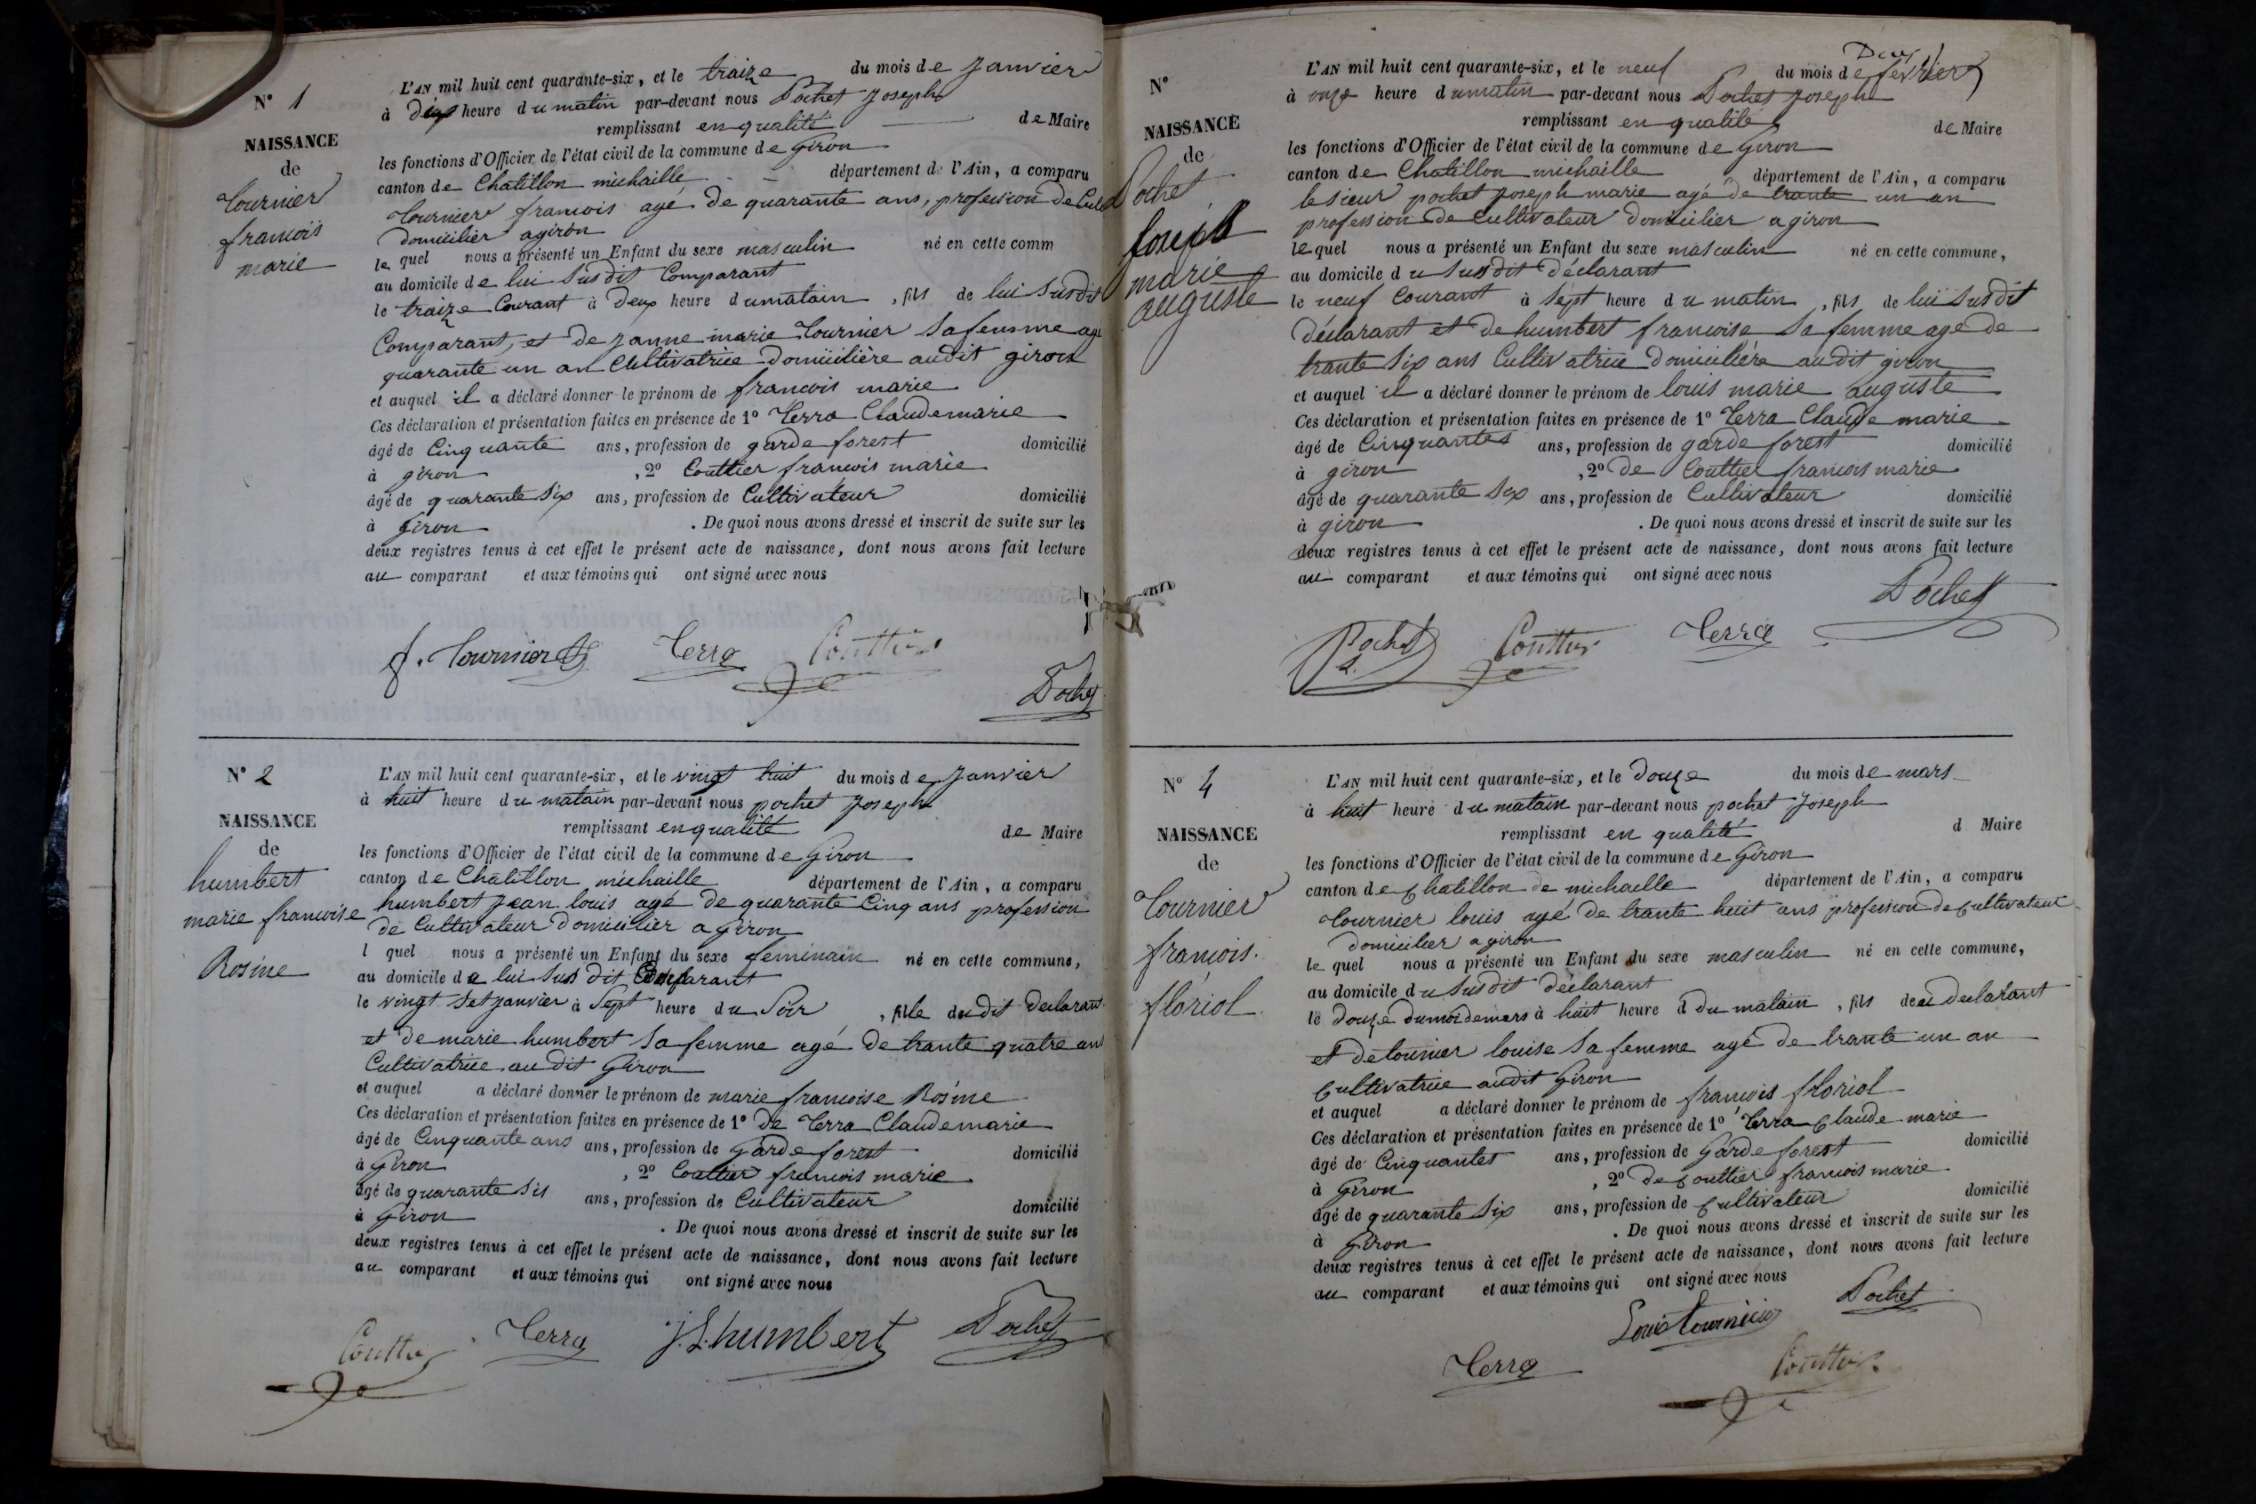 N° 1
NAISSANCE
de
Tournier
francois
marie
L'AN mil huit cent quarante-six, et le traize du mois de Janvier
à dix heure du matin par-devant nous Pochet Joseph
remplissant en qualité de Maire
les fonctions d'Officier de l'état civil de la commune de Giron
canton de Chatillon michaille département de l'Ain, a comparu
Tournier francois agé de quarante ans, profession de
domicilier a giron
le quel nous a présenté un Enfant du sexe masculin né en cette comm
au domicile de lui susdit Comparant
le traize Courant à Deux heure du matain, fils de lui susdit
Comparant, et de Janne marie Tournier sa femme agé
quarante un an Cultivatrice Domicilière audit giron
et auquel il a déclaré donner le prénom de francois marie
Ces déclaration et présentation faites en présence de 1° Terra Claudemarie
âgé de Cinquante ans, profession de garde forest domicilié
à giron, 2° Couttier francois marie
âgé de quarante six ans, profession de Cultivateur domicilié
à Giron. De quoi nous avons dressé et inscrit de suite sur les
deux registres tenus à cet effet le présent acte de naissance, dont nous avons fait lecture
au comparant et aux témoins qui ont signé avec nous
f. Tournier Terra Couttier
Pochet
N° 2
NAISSANCE
de
humbert
marie francoise
Rosine
L'AN mil huit cent quarante-six, et le vingt huit du mois de Janvier
à huit heure du matain par-devant nous pochet Joseph
remplissant en qualité de Maire
les fonctions d'Officier de l'état civil de la commune de Giron
canton de Chatillon michaille département de l'Ain, a comparu
humbert Jean louis agé de quarante Cinq ans profession
de Cultivateur Domicilier a giron
l quel nous a présenté un Enfant du sexe feminain né en cette commune,
au domicile de lui sus dit Comparant
le vingt set janvier à Sept heure du Soir, fille dudit Declarant
et de marie humbert sa femme agé de trante quatre ans
Cultivatrice au dit Giron
et auquel a déclaré donner le prénom de marie francoise Rosine
Ces déclaration et présentation faites en présence de 1° de Terra Claudemarie
âgé de Cinquante ans ans, profession de Garde forest domicilié
à Giron, 2° Couttier francois marie
âgé de quarante sis ans, profession de Cultivateur domicilié
à Giron. De quoi nous avons dressé et inscrit de suite sur les
deux registres tenus à cet effet le présent acte de naissance, dont nous avons fait lecture
au comparant et aux témoins qui ont signé avec nous
Couttier Terra J. L. humbert Pochet
N°
NAISSANCE
de
Pochet
marie
auguste
L'AN mil huit cent quarante-six, et le neuf du mois de fevrier
à onze heure du matin par-devant nous Pochet Joseph
remplissant en qualité de Maire
les fonctions d'Officier de l'état civil de la commune de Giron
canton de Chatillon michaille département de l'Ain, a comparu
le sieur pochet Joseph marie agé de trante un an
profession de Cultivateur domicilier a giron
le quel nous a présenté un Enfant du sexe masculin né en cette commune,
au domicile du susdit déclarant
le neuf Courant à sept heure du matin, fils de lui susdit
Déclarant et de humbert francoise sa femme age de
trante six ans Cultivatrice Domicilière au dit giron
et auquel il a déclaré donner le prénom de louis marie auguste
Ces déclaration et présentation faites en présence de 1° Terra Claude marie
âgé de Cinquantes ans, profession de garde forest domicilié
à giron, 2° de Couttier francois marie
âgé de quarante six ans, profession de Cultivateur domicilié
à giron. De quoi nous avons dressé et inscrit de suite sur les
deux registres tenus à cet effet le présent acte de naissance, dont nous avons fait lecture
au comparant et aux témoins qui ont signé avec nous
Pochet
Pochet Couttier Terra
N° 4
NAISSANCE
de
Tournier
francois.
floriol
L'AN mil huit cent quarante-six, et le Douze du mois de mars
à huit heure du matain par-devant nous pochet Joseph
remplissant en qualité d Maire
les fonctions d'Officier de l'état civil de la commune de Giron
canton de Chatillon de michaelle département de l'Ain, a comparu
Tournier louis agé de trante huit ans profession de Cultivateur
domicilier a giron
le quel nous a présenté un Enfant du sexe masculin né en cette commune,
au domicile du susdit déclarant
le Douze dumoi demars à huit heure d Du matain, fils deu declarant
et de tournier louise sa femme agé de trante un an
Cultivatrice audit Giron
et auquel a déclaré donner le prénom de francois floriol
Ces déclaration et présentation faites en présence de 1° Terra Claude marie
âgé de Cinquantes ans, profession de Garde forest domicilié
à Giron, 2° de Couttier francois marie
âgé de quarante six ans, profession de Cultivateur domicilié
à Giron. De quoi nous avons dressé et inscrit de suite sur les
deux registres tenus à cet effet le présent acte de naissance, dont nous avons fait lecture
au comparant et aux témoins qui ont signé avec nous
Louis tournier Pochet
Terra Couttier